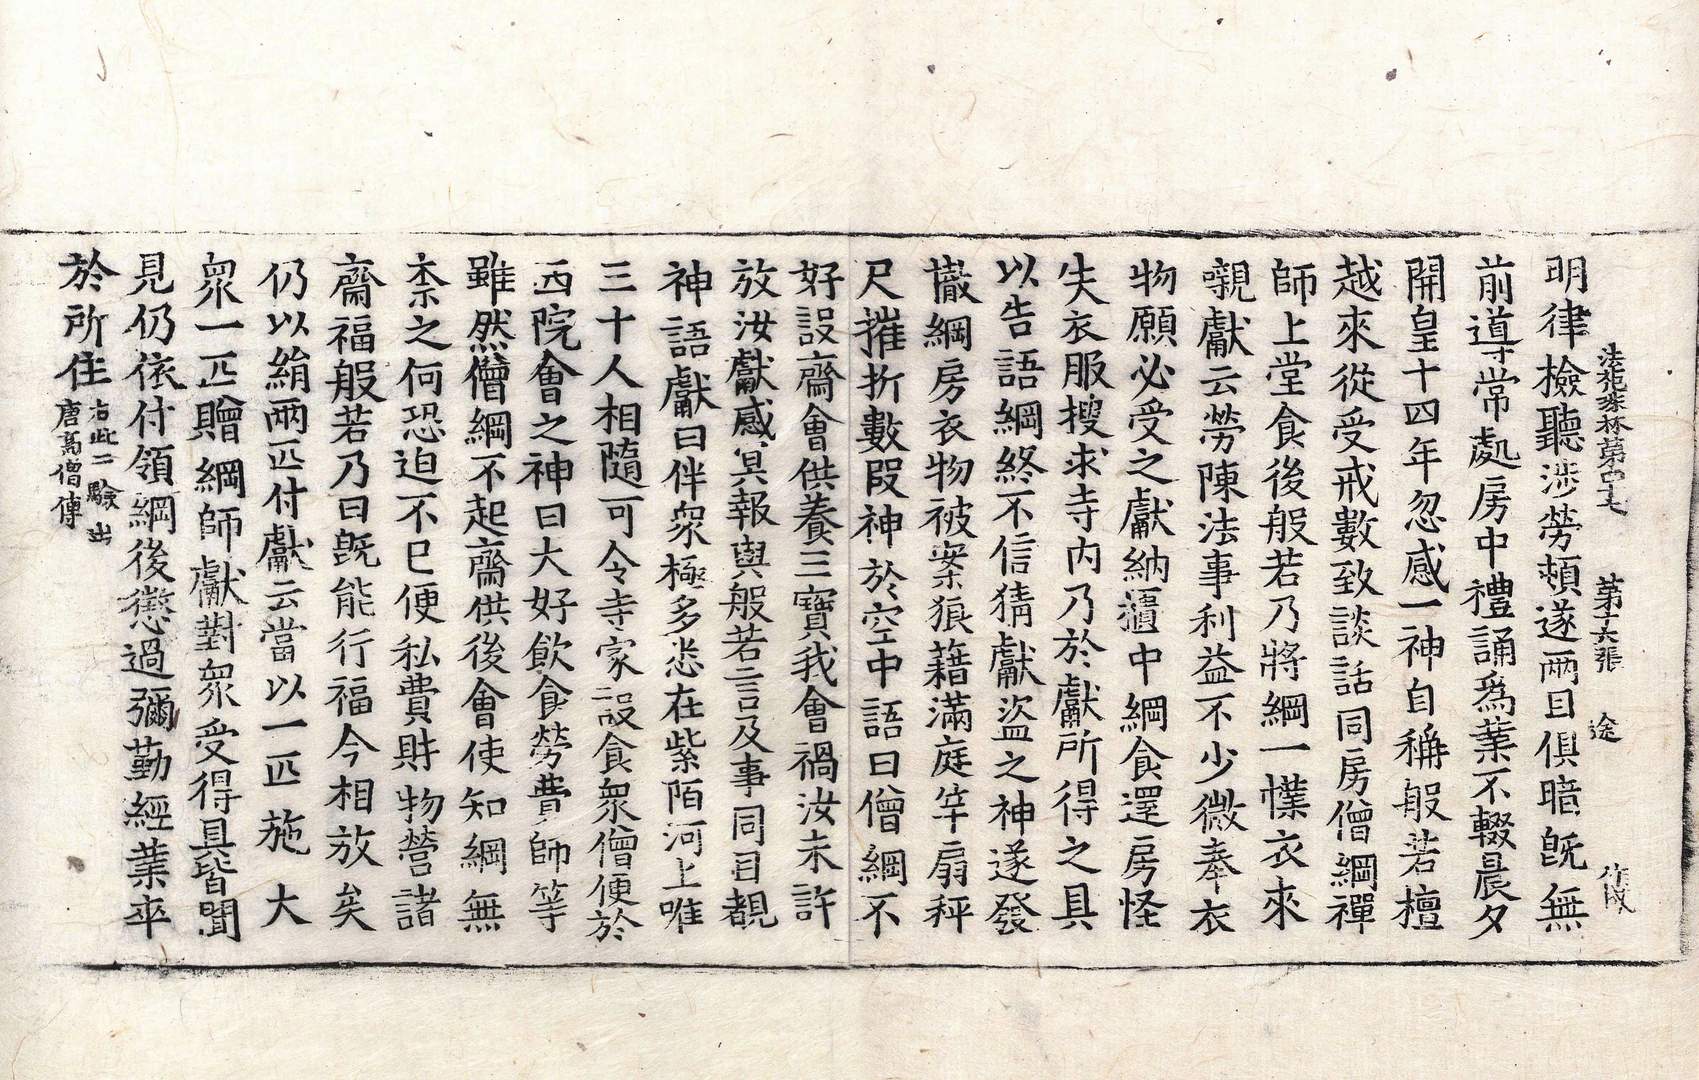 法苑珠林第四十七 第十六張 途
明律撿聽涉勞頓遂兩目俱暗旣無
前導常處房中禮誦爲業不輟晨夕
開皇十四年忽感一神自稱般若檀
越來從受戒數致談話同房僧綱禪
師上堂食後般若乃將綱一幞衣來
覩獻云勞陳法事利益不少微奉衣
物願必受之獻納櫃中綱食還房怪
失衣服搜求寺内乃於獻所得之具
以告語綱終不信猜獻盜之神遂發
撤綱房衣物被案狼藉滿庭竿扇秤
尺摧折數段神於空中語曰僧綱不
好設齋會供養三寶我會禍汝未許
放汝獻感冥報與般若言及事同目覩
神語獻曰伴衆極多悉在紫陌河上唯
三十人相隨可令寺家設食衆僧便於
西院會之神曰大好飮食勞費師等
雖然僧綱不起齋供後會使知綱無
柰之何恐迫不已便私費財物營諸
齋福般若乃曰旣能行福今相放矣
仍以絹兩匹付獻云當以一匹施大
衆一匹贈綱師獻對衆受得具皆聞
見仍依付領綱後懲過彌勤經業卒
於所住右此二驗出唐高僧傳